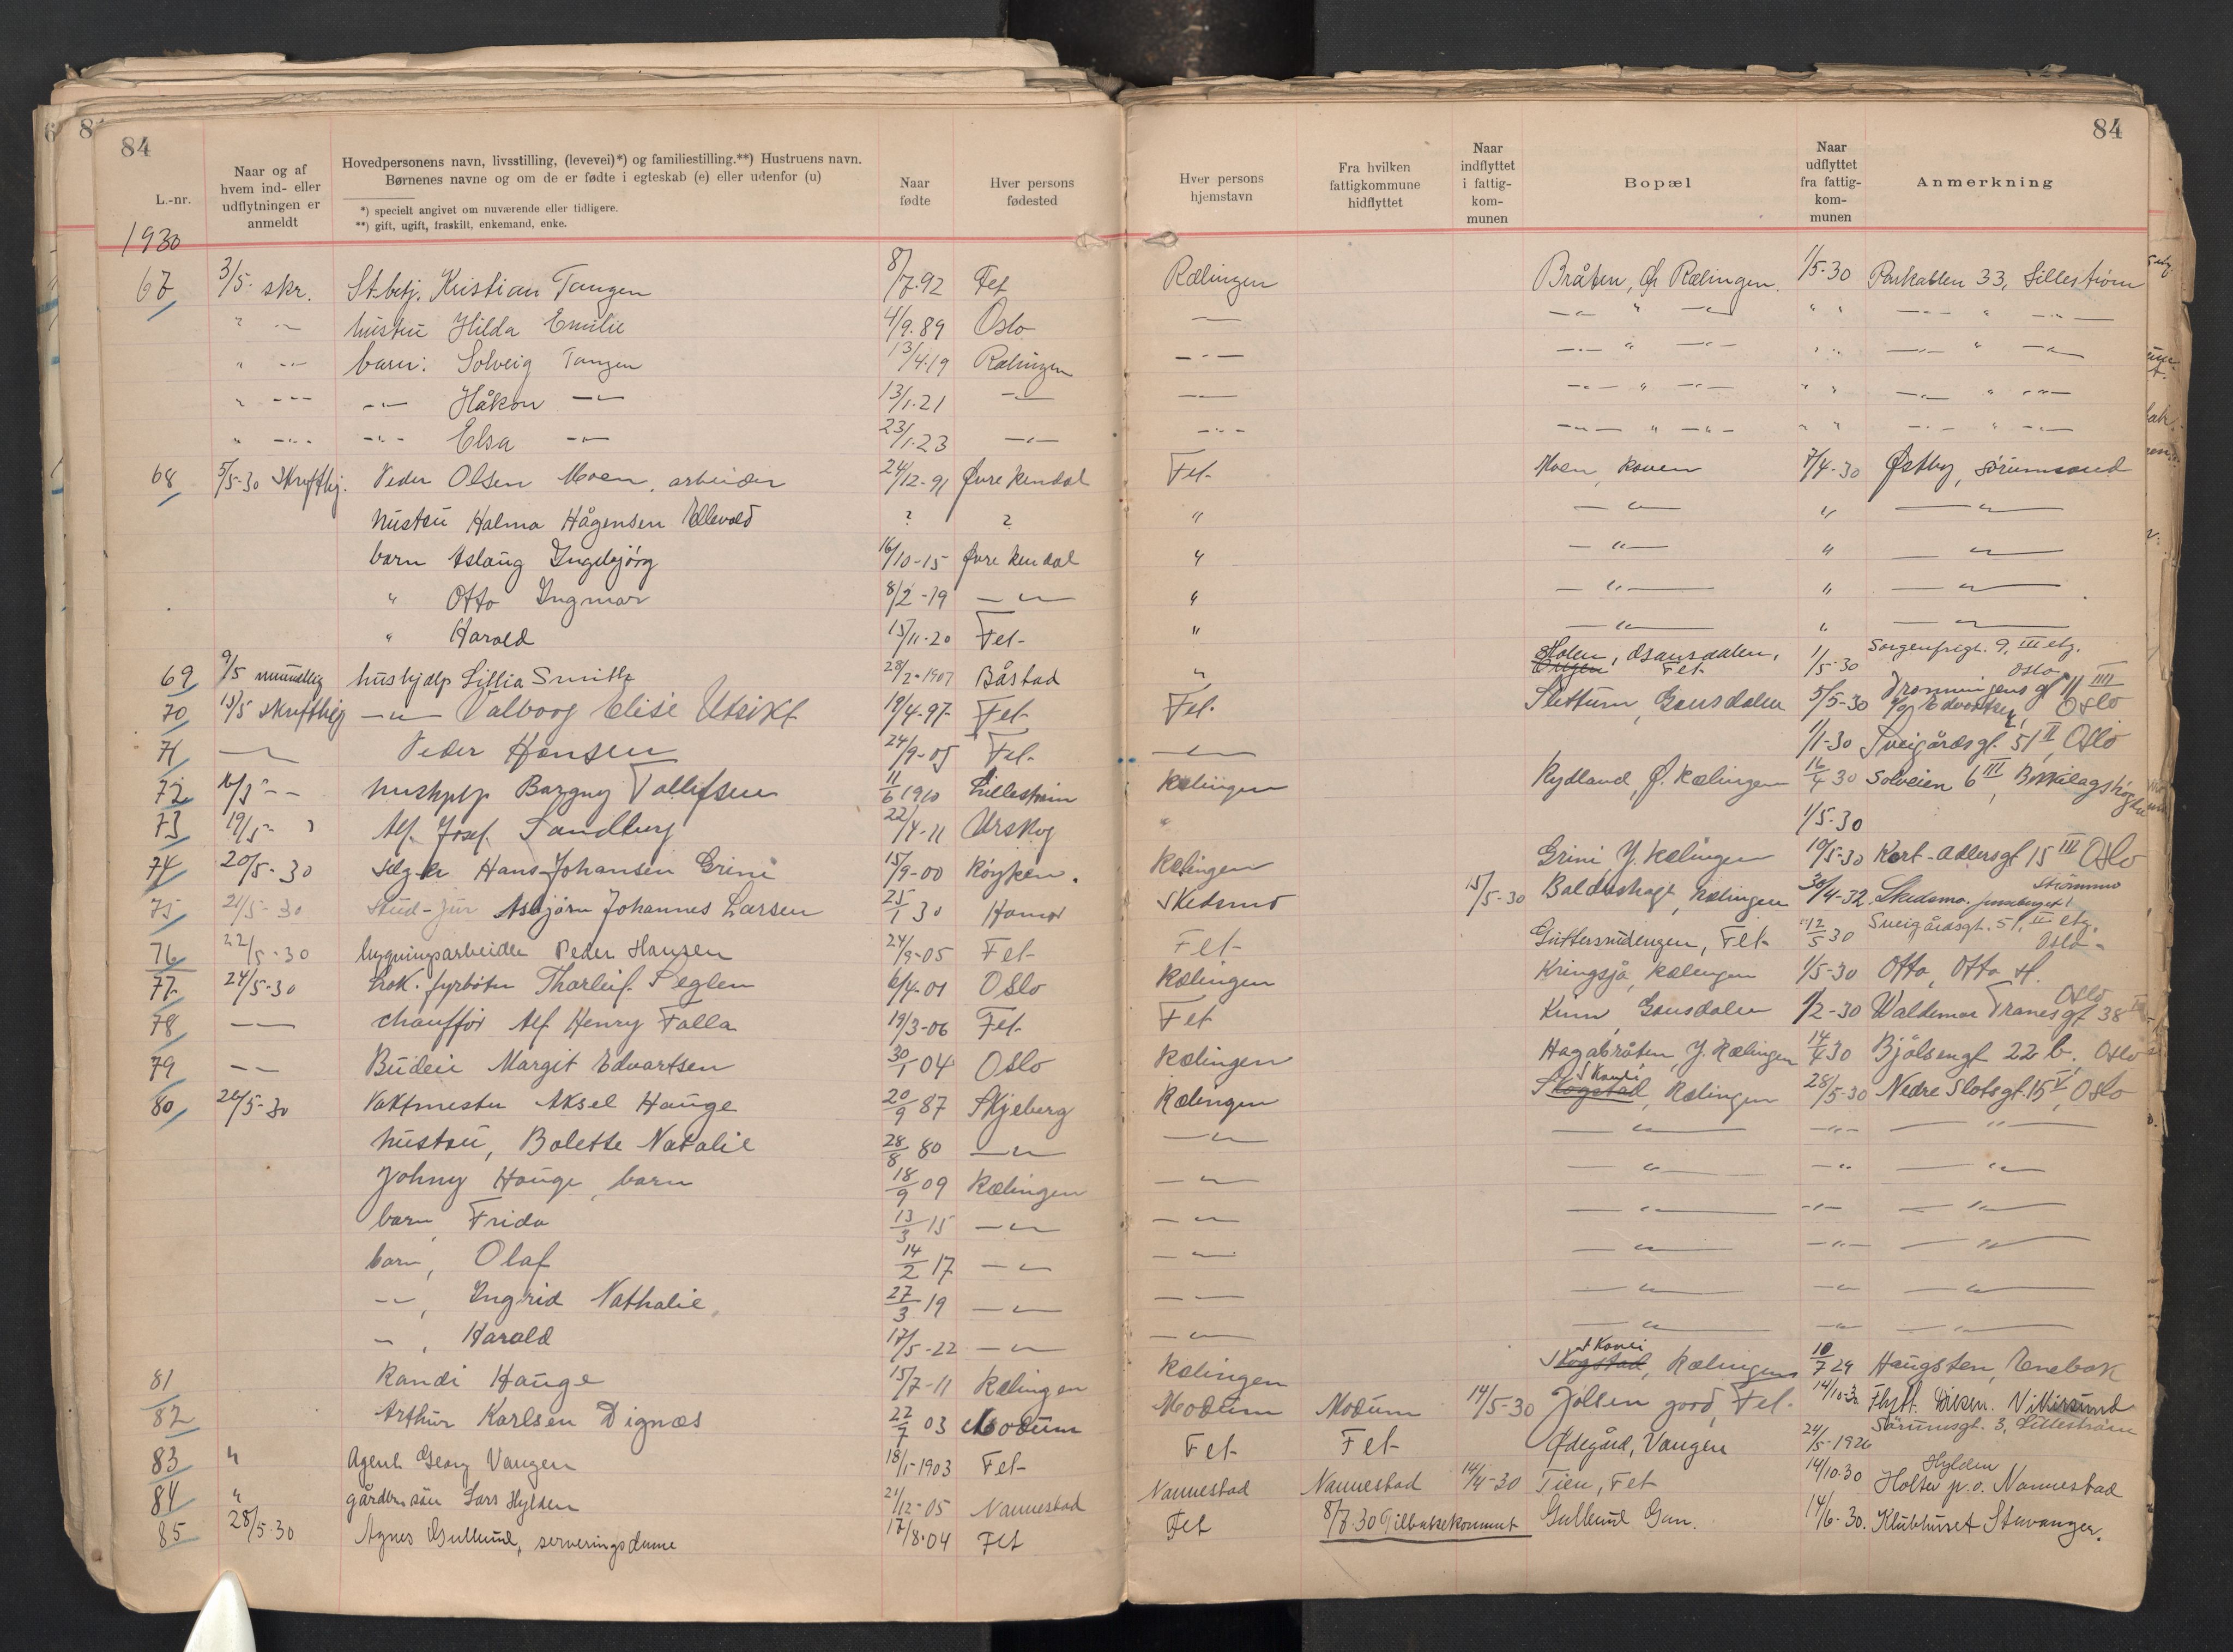 84
84
L.-nr.
Naar og af hvem ind- eller udflytningen er anmeldt
Hovedpersonens navn, livsstilling, (levevei)*) og familiestilling.**) Hustruens navn.
Børnenes navne og om de er fødte i egteskab (e) eller udenfor (u)
*) specielt angivet om nuværende eller tidligere.
**) gift, ugift, fraskilt, enkemand, enke.
Naar fødte
Hver persons fødested
Hver persons hjemstavn
Fra hvilken fattigkommune hidflyttet
Naar indflyttet i fattig-kom-munen
Bopæl
Naar udflyttet fra fattig-kom-munen
Anmerkning
1930
67 3/5- skr. St.betj. Kristian Tangen 8/7.92 Fet Rælingen Bråten, Ø. Rælingen. 1/5-30 Parkalléen 33, Lillestrøm
" -"- hustru Hilda Emilie 4/9.89 Oslo -"- -"- " -"- " " -"- " -"-
" -"- barn: Solveig Tangen 13/4.19 Rælingen -"- -"- " -"- " " -"- " -"-
" -"- -"- Håkon -"- 13/1.21 -"- -"- -"- " -"- " " -"- " -"-
" -"- -"- Elsa -"- 23/1.23 -"- -"- -"- " -"- " " -"- " -"-
68 5/5-30 Skriftlig. Peder Olsen Moen, arbeider 24/12-91 Øvre Rendal Fet- Moen, Roven 7/4-30 Østby, Sørumsand
hustru Halma Hågensen Ellevold ? ? " -"- " -"-
barn Aslaug Ingebjørg 16/10-15 Øvre Rendal " -"- " -"-
" Otto Ingmar 8/2-19 -"- " -"- " -"-
" Harald 15/11-20 Fet- " -"- " -"-
69 9/5 mundtlig hushjælp Lillia Smith 28/2-1907 Båstad " Holen, Gansdalen, Fet 1/5-30 Sorgenfrigt. 9, III etg. Oslo
70 13/5 skriftlig -"- Valborg Elise Utsikt 19/4-97- Fet- Fet. Slettum, Gansdalen 5/5-30 Dronningens gt 11 IIII c/o Edvartsen, Oslo
71 -"- Peder Hansen 24/9-05 Fet- -"- 1/1-30 Sveigårdsgt. 51 II Oslo
72 16/5 -- hushjelp Borgny Tollefsen 11/6 1910 Lillestrøm Rælingen Rydland, Ø. Rælingen 16/4 30 Solveien 6 III, Bekkelagshøgda
73 19/5- " Alf. Josef. Sandberg 22/4-11 Urskog " 1/5-30
74 20/5-30 Hans Johansen Grini 15/9-00 Røyken. Rælingen Grini Y. Rælingen 19/5-30 Kort-Adlersgt 15 III Oslo
75 21/5-30 Stud-jur Asbjørn Johannes Larsen 25/1 30 Hamar Skedsmo 15/5-30 Rælingen 30/4-32. Skedsmo. Strømmen
76 22/5-30 bygningsarbeider Peder Hansen 24/9-05 Fet- Fet- Guttersrudengen, Fet- 12/5 30 Sveigårdsgt. 51, II etg. Oslo-
77- 24/5-30 Lok. fyrbøter Thorleif. Seglem 6/4-01 Oslo Rælingen Kringsjå, Rælingen 1/5-30 Otta, Otta st.
78 -"- chauffør Alf Henry Falla 19/3-06 Fet- Fet Kinn, Gansdalen 1/2-30 Waldemar Tranesgt 38 Oslo
79 -"- Budeie Margit Edvartsen 30/1 04 Oslo Rælingen Hagabråten, Y. Rælingen 14/4 30 Bjølsengt 22 b, Oslo
80 26/5-30 Vaktmester Aksel Hauge 20/9 87 Skjeberg Rælingen Skogstad, Rælingen 28/5-30 Nedre Slotsgt. 15 V, Oslo
hustru, Bolette Natalie 28/8 80 -"- -"- -"- -"- -"-
Johny Hauge, barn 18/9 09 Rælingen -"- -"- -"- -"-
barn, Frida 13/3 15 -"- -"- -"- -"- -"-
barn, Olaf 14/2 17 -"- -"- -"- -"- -"-
-"-, Ingrid Nathalie, 27/3 19 -"- -"- -"- -"- -"-
-"-, Harald 17/5-22 -"- -"- -"- -"- -"-
81 Randi Hauge 15/7-11 Rælingen Rælingen Skogstad, Rælingen 10/7 29 Haugsten, Enebak
82 Arthur Karlsen Dignæs 22/7 03 Modum Modum Modum 14/5-30 Jølsen gård, Fet- 14/10-30 Flytt. Vikersund
83 " Agent Georg Vangen 18/1-1903 Fet- Fet- Fet- Ødegård, Vangen 24/5-1926 Sørumsgt. 3, Lillestrøm
84 " gårdbr.søn Lars Hylden 21/12-05 Nannestad Nannestad Nannestad 14/4-30 Tien, Fet 14/10.30 Hylden Holter p.o. Nannestad
85 28/5-30 Agnes Gullund, serveringsdame 17/8.04 Fet Fet 8/7.30 Tilbakekommet Gullund Gan. 14/6-30. Klubhuset Stavanger.